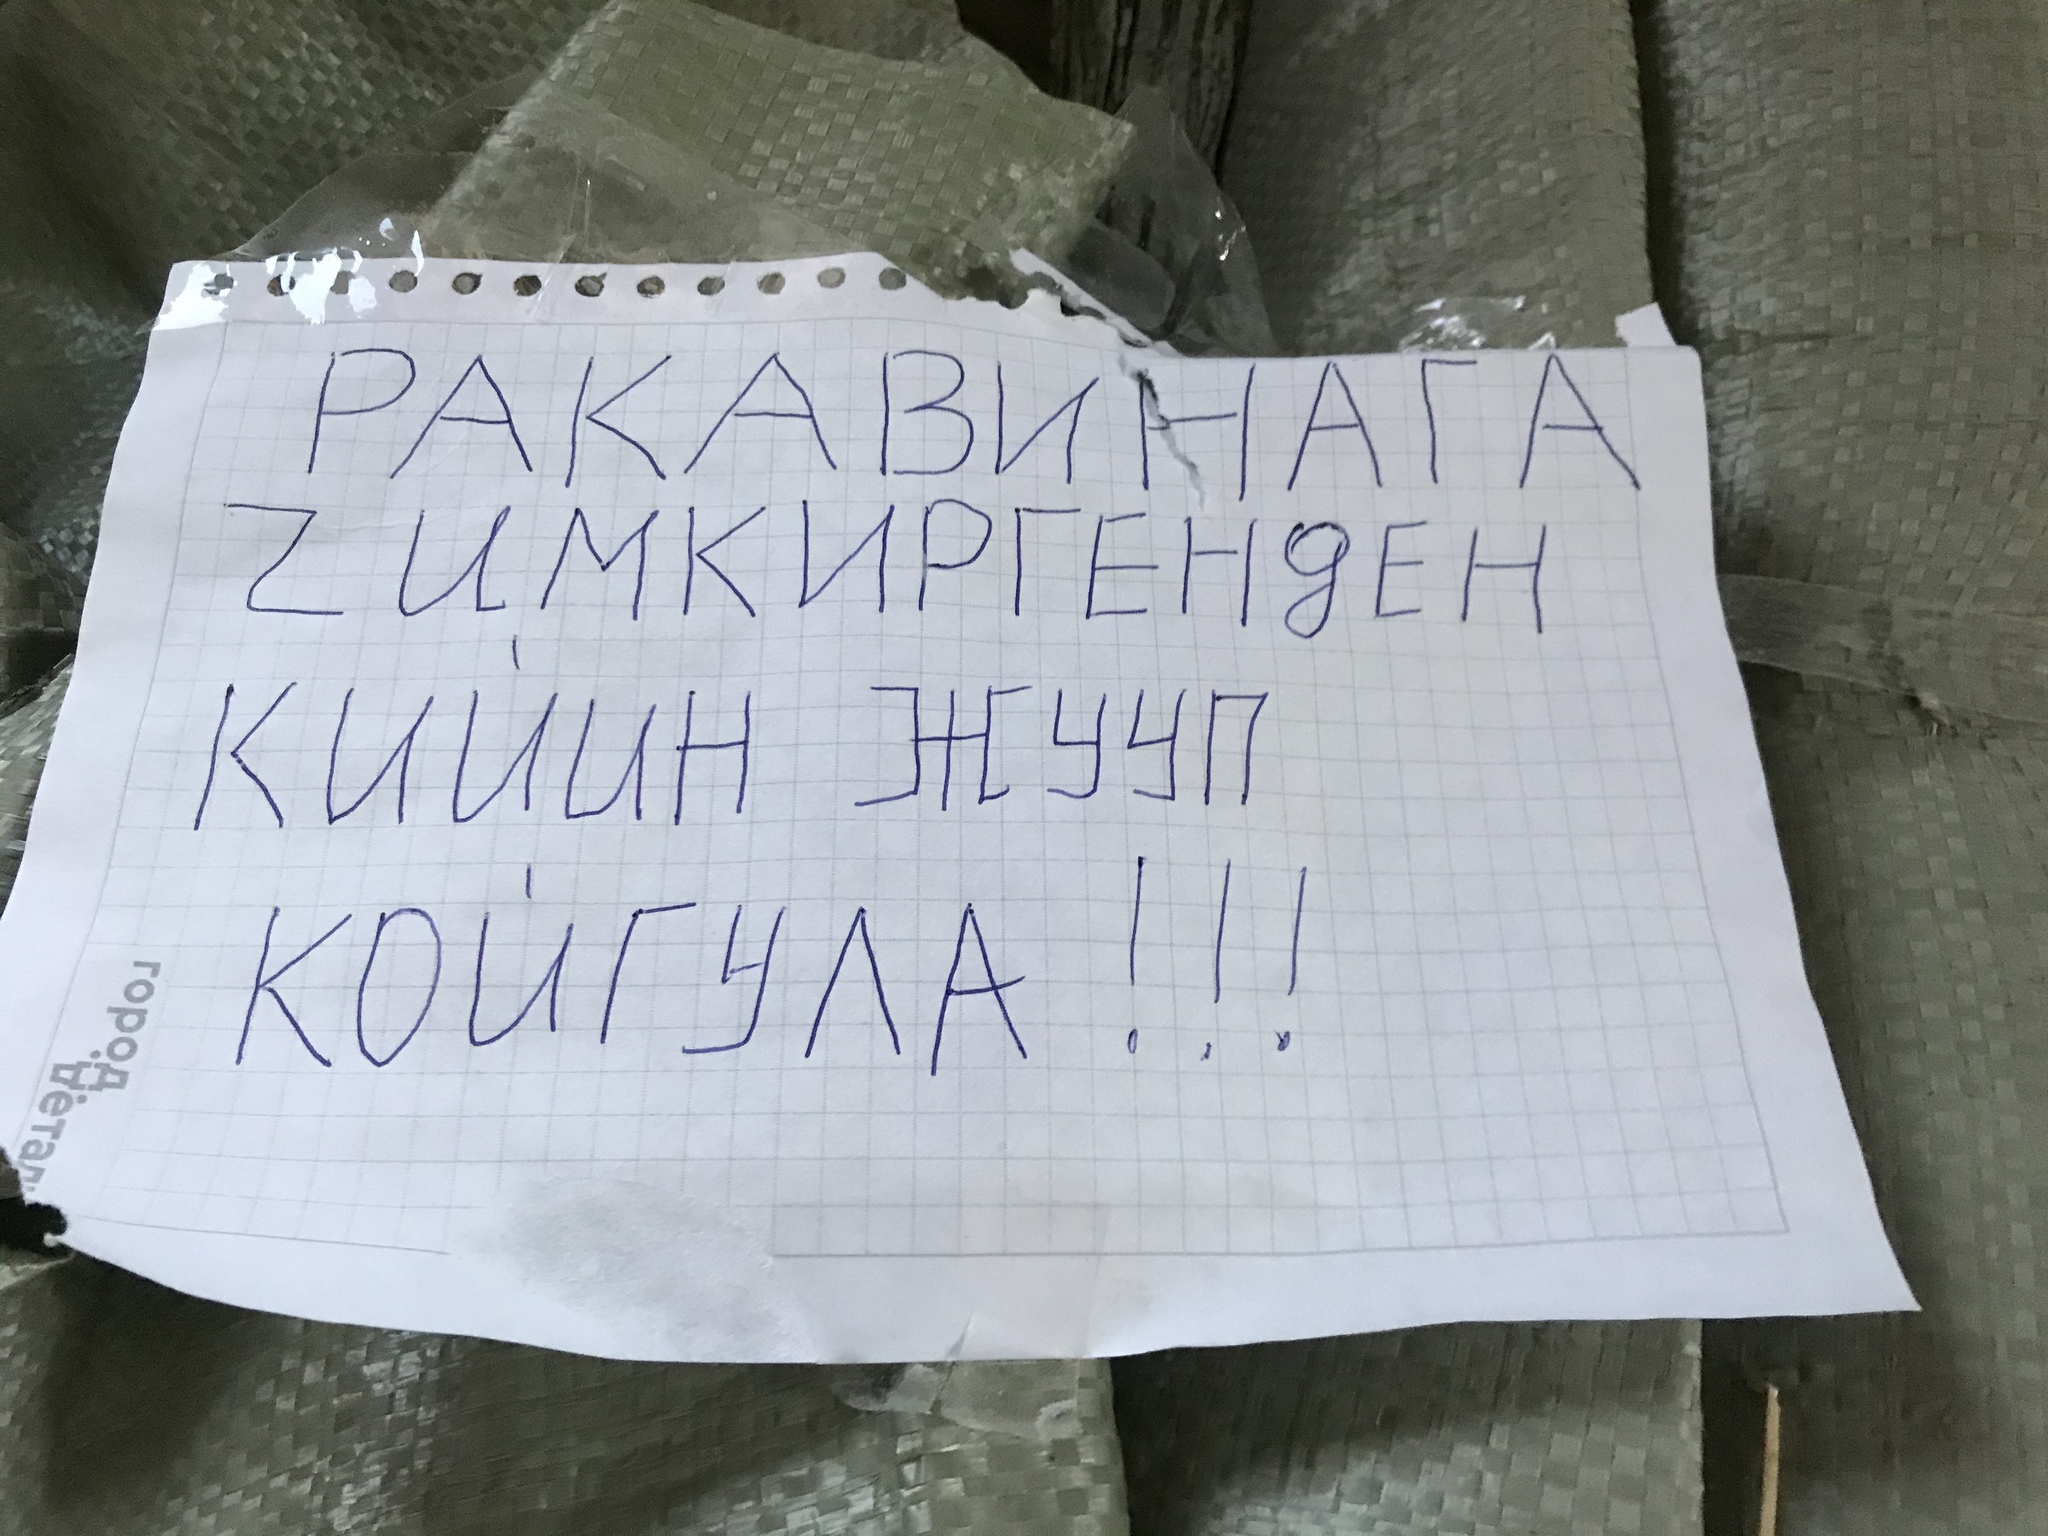 РАКАВИНАГА
ZИМКИРГЕНДЕН
КИЙИН ЖУУП
КОЙГУЛА!!!
город